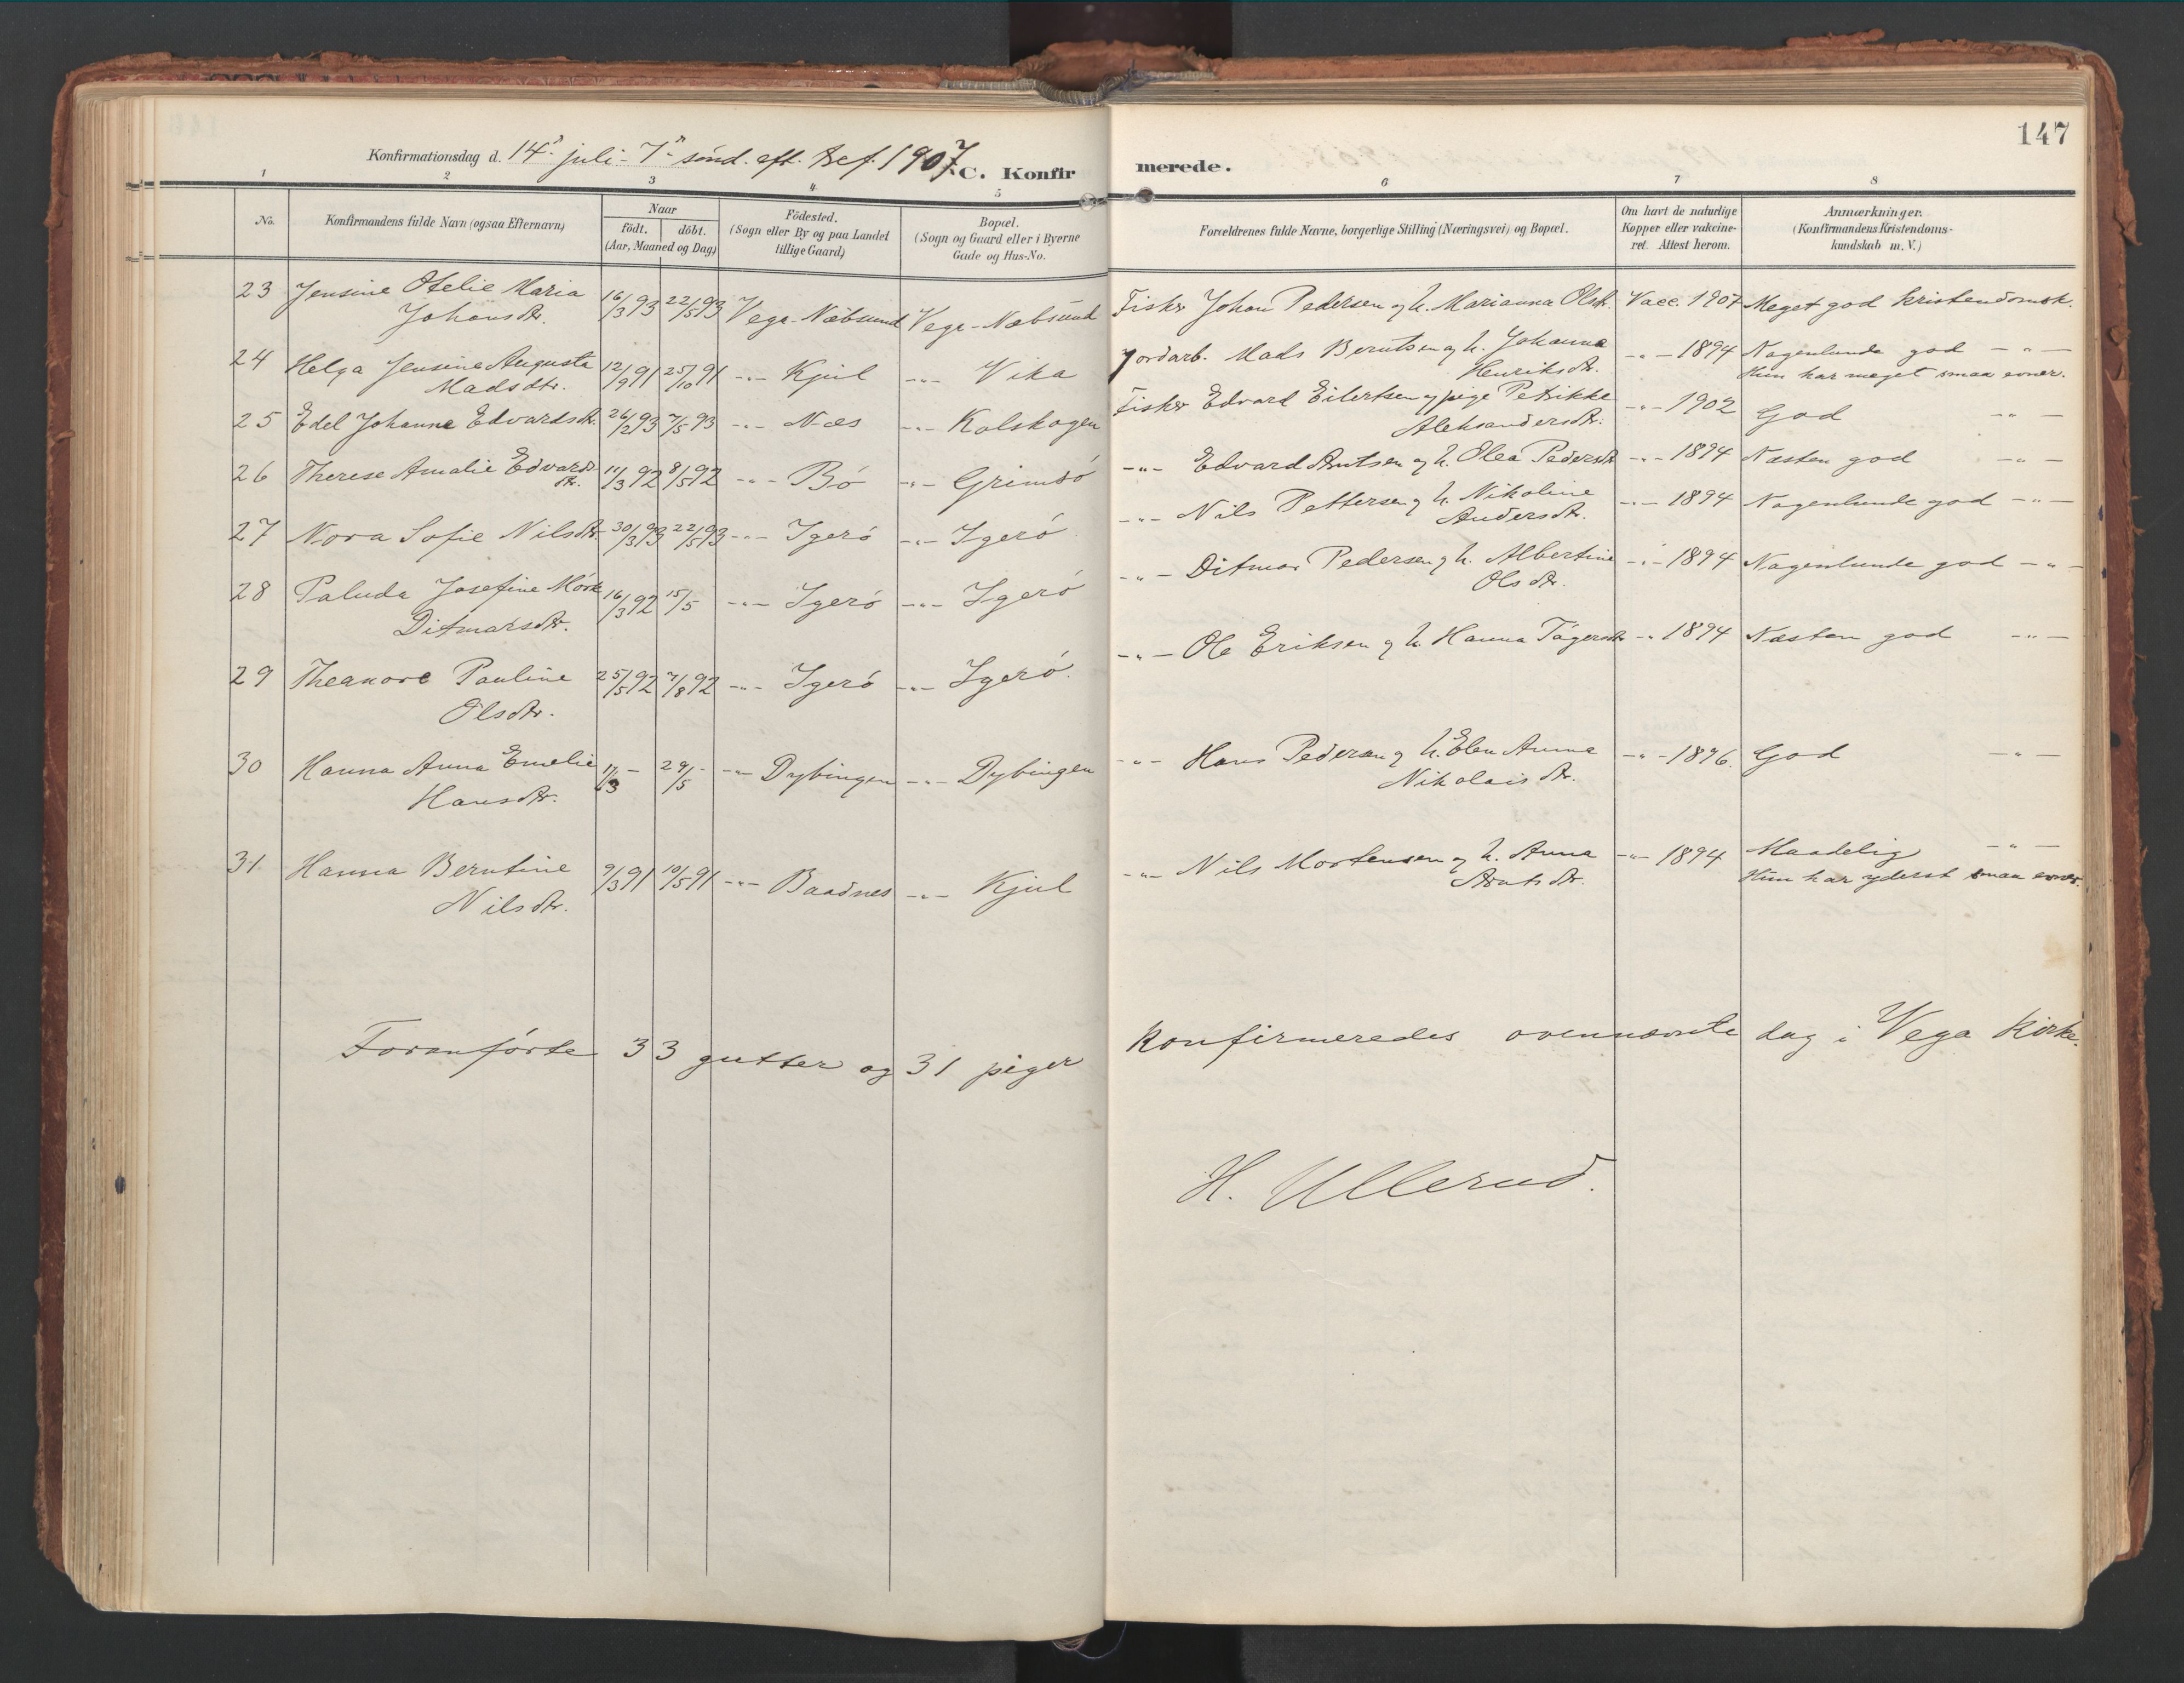 147
Konfirmationsdag d. 14de juli - 7de sönd. eft. tref. 1907. C. Konfirmerede.
1 2 3 4 5 6 7 8
No.
Konfirmandens fulde Navn (ogsaa Efternavn)
Naar
födt. döbt.
(Aar, Maaned og Dag)
Födested.
(Sogn eller By og paa Landet
tillige Gaard)
Bopæl.
(Sogn og Gaard eller i Byerne
Gade og Hus-No.
Forældrenes fulde Navne, borgerlige Stilling (Næringsvei) og Bopæl.
Om havt de naturlige
Kopper eller vakcine-
ret. Attest herom.
Anmærkninger.
(Konfirmandens Kristendoms-
kundskab m. V.)
23 Jensine Otelie Maria 16/3 93 22/5 93 Vega-Næbsund Vega-Næbsund Fisker Johan Pedersen og h. Marianna Olsdtr. Vacc. 1907 Meget god kristendomsk.
Johansdtr.
24 Helga Jensine Augusta 12/9 91 25/10 91 -"- Kjul -"- Vika Jordarb. Mads Berntsen og h. Johanna -"- 1894 Nogenlunde god -"-
Madsdtr. Henriksdtr. Hun har meget smaa evner.
25 Edel Johanne Edvardsdtr. 26/2 93 7/5 93 -"- Næs -"- Kolskogen Fisker Edvard Eilertsen og pige Petrikke -"- 1902 God -"-
Aleksandersdtr.
26 Therese Amalie Edvards- 11/3 92 8/5 92 -"- Bö -"- Grimsö -"- Edvard Arntsen og h. Olea Pedersdtr -"- 1894 Næsten god -"-
dtr.
27 Nora Sofie Nilsdtr. 30/3 93 22/5 93 -"- Igerö -"- Igerö -"- Nils Pettersen og h. Nikoline -"- 1894 Nogenlunde god -"-
Andersdtr.
28 Paluda Josefine Mörk 16/3 92 15/5 -"- Igerö -"- Igerö -"- Ditmar Pedersen og h. Albertine -"- 1894 Nogenlunde god -"-
Ditmarsdtr. Olsdtr.
29 Theanore Pauline 25/5 92 7/8 92 -"- Igerö -"- Igerö. -"- Ole Eriksen og h. Hanna Tögersdtr -"- 1894 Næsten god -"-
Olsdtr.
30 Hanna Anna Emelie 11/3 - 29/5 - -"- Dybingen -"- Dybingen -"- Hans Pedersen og h. Elen Anna -"- 1896. God -"-
Hansdtr. Nikolaisdtr.
31 Hanna Berntine 9/3 91 10/5 91 -"- Baadnes -"- Kjul -"- Nils Mortensen og h. Anna -"- 1894 Maadelig -"-
Nilsdtr. Arntsdtr. Hun har yderst smaa evner.
Foranförte 33 gutter og 31 piger konfirmeredes ovennævnte dag i Vega Kirke.
H. Ullerud.